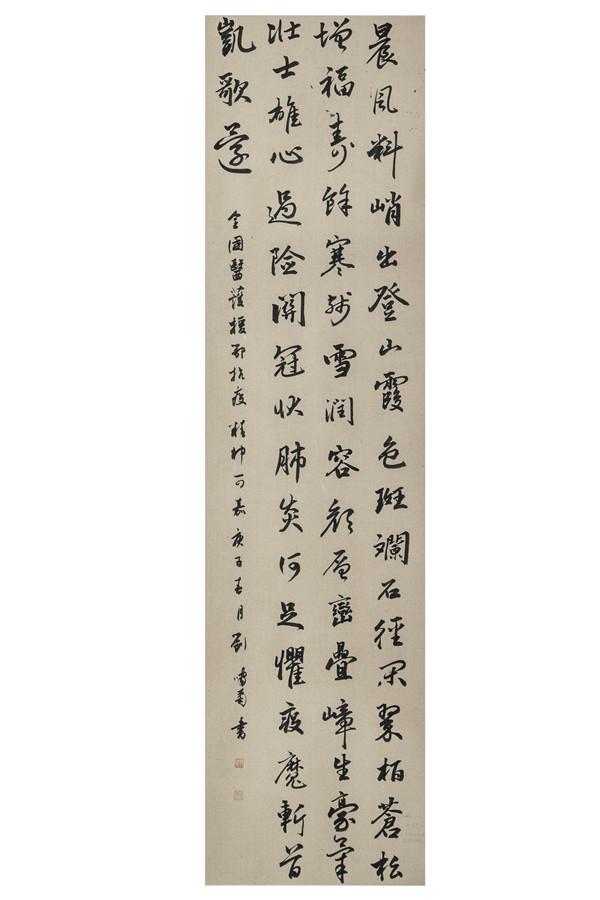 晨風料峭出登山霞色斑斕石徑閑翠柏蒼松
增福壽餘寒殘雪潤容顏層巒疊嶂生豪氣
壯士雄心過險關冠狀肺炎何足懼疫魔斬首
凱歌還
全國醫護援鄂抗疫精神可嘉庚子春月劉菊書